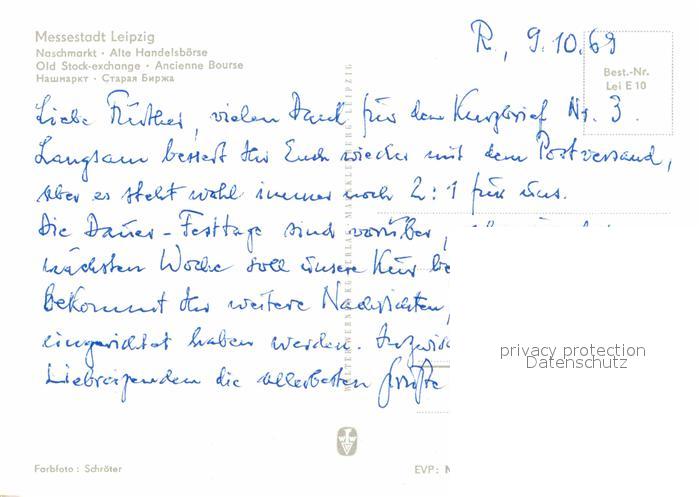 Messestadt Leipzig
Naschmarkt · Alte Handelsbörse
Old Stock-exchange · Ancienne Bourse
Нашмаркт · Старая Биржа
R., 9.10.69
Best.-Nr.
Lei E 10
Liebe, vielen Dank für den Kurzbrief Nr. 3.
Langsam bessert Ihr Euch wieder mit dem Postversand,
aber es steht wohl immer noch 2:1 für uns.
Die Dauer-Festtage sind vorüber,
nächsten Woche soll unsere Kur be
bekommt Ihr weitere Nachrichten,
eingerichtet haben werden. Inzwisc
die allerbesten Grüße
privacy protection
Datenschutz
Farbfoto: Schröter
EVP: